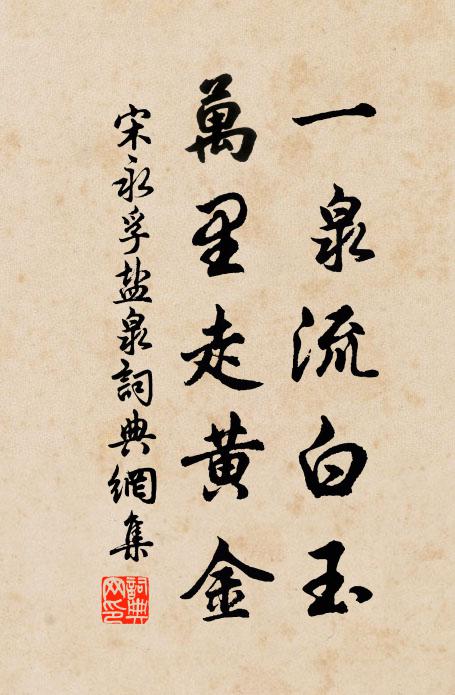 一泉流白玉
萬里走黄金
宋永孚盐泉詞典網集
詞典網印